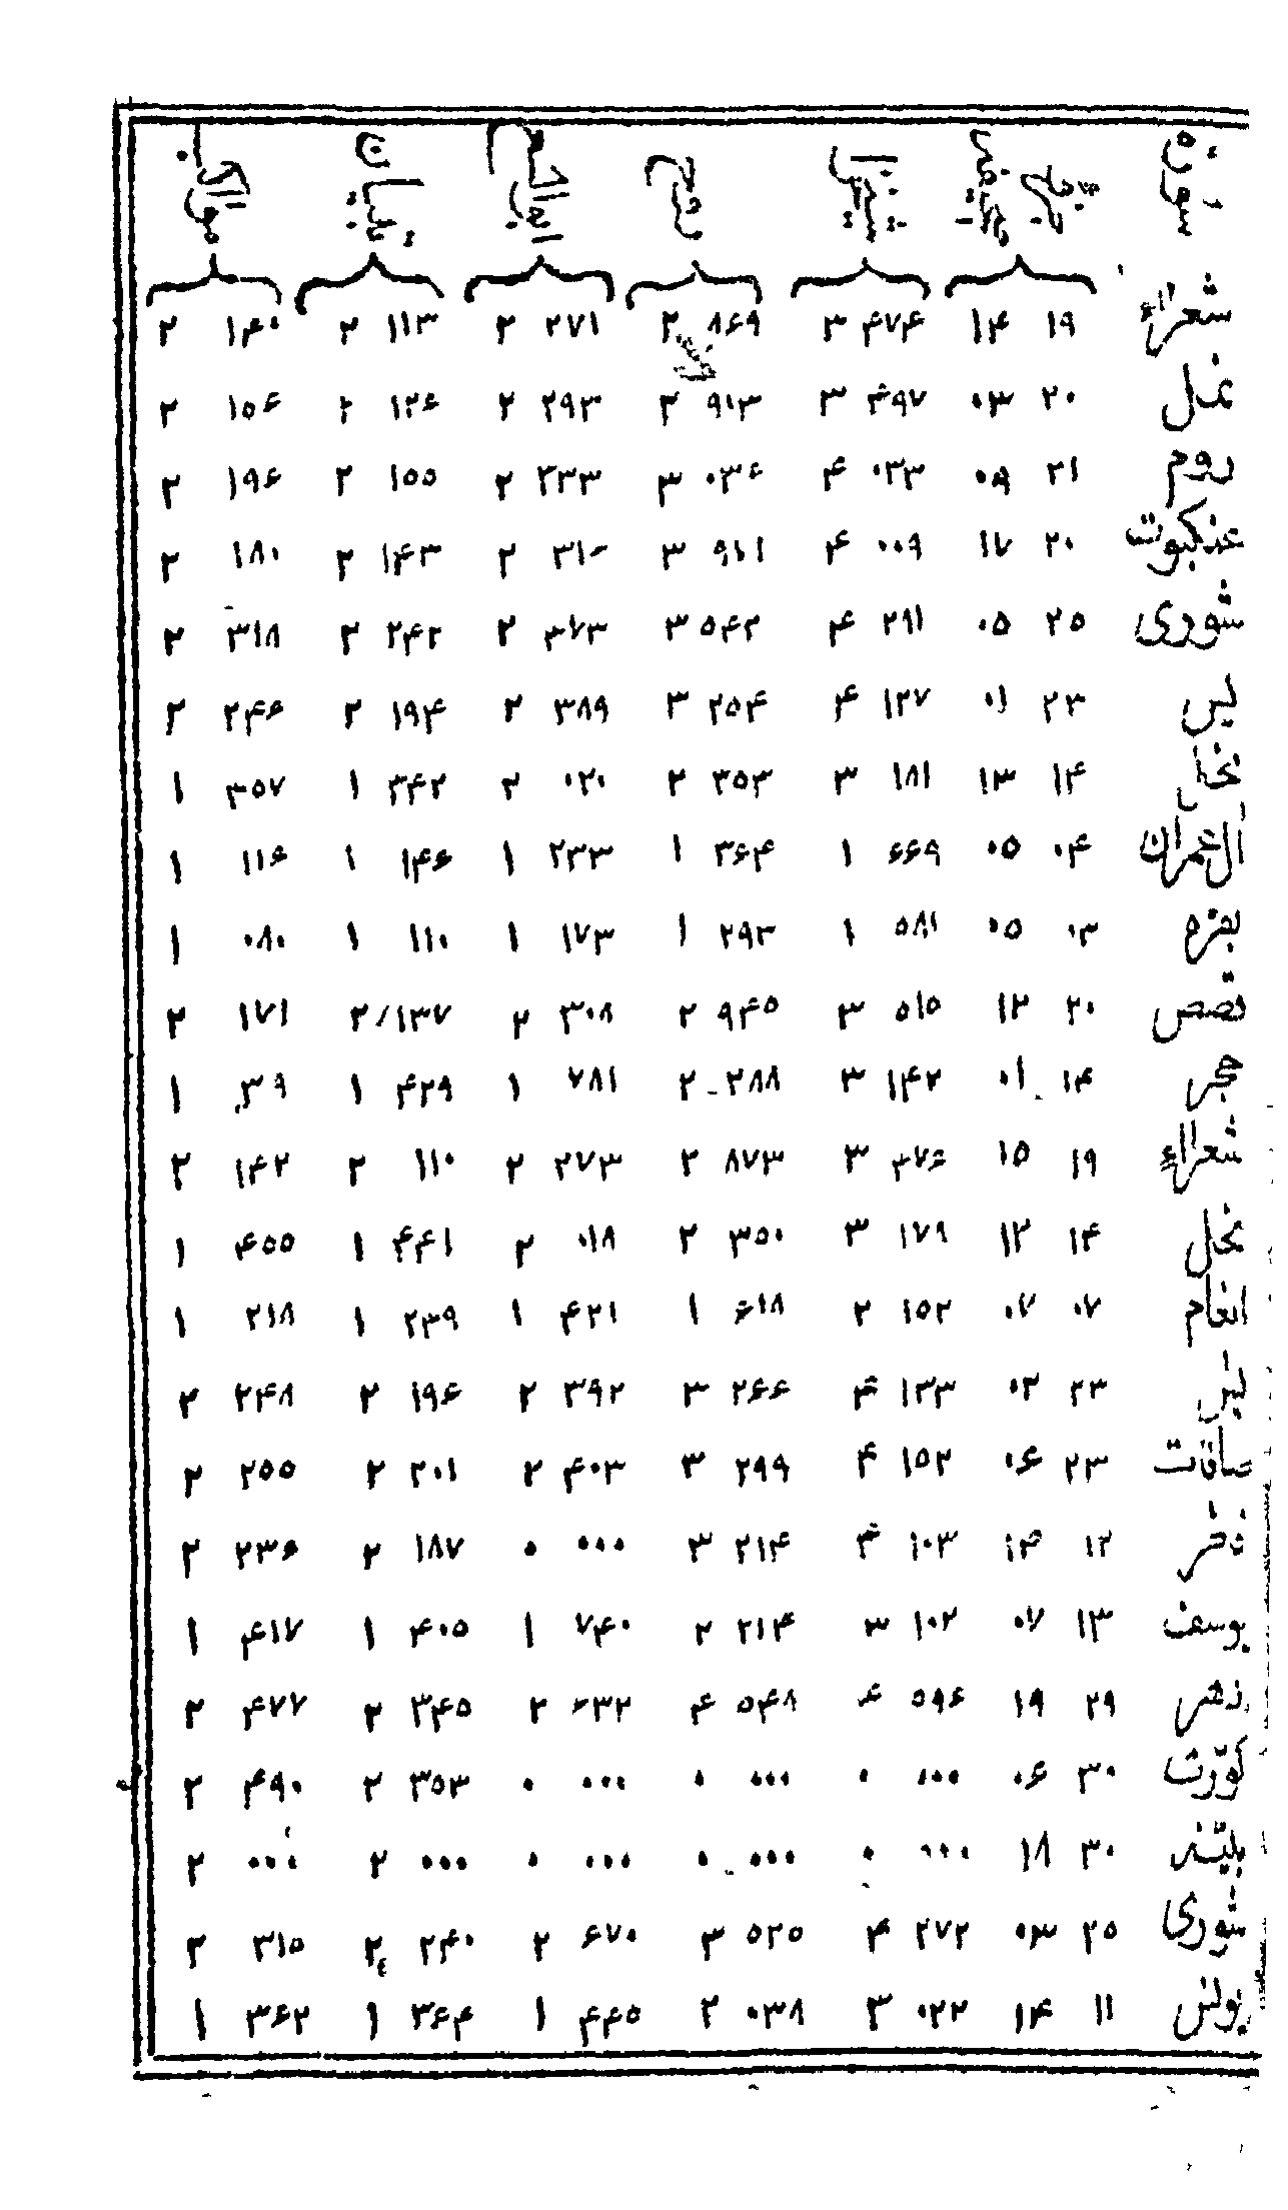 شعراء ۱۹ ۱۴ ۴۷۴ ۳ ۸۶۹ ۲ ۲۷۱ ۲ ۱۱۳ ۲ ۱۴۰ ۲
نمل ۲۰ ۰۳ ۴۹۷ ۳ ۹۱۳ ۲ ۲۹۳ ۲ ۱۲۶ ۲ ۱۵۶ ۲
روم ۲۱ ۰۹ ۰۳۳ ۴ ۰۳۶ ۳ ۳۳۳ ۲ ۱۵۵ ۲ ۱۹۶ ۲
عنکبوت ۲۰ ۱۷ ۰۰۹ ۴ ۹۱۱ ۳ ۲ ۱۴۳ ۲ ۱۸۰ ۲
شوری ۲۵ ۰۵ ۲۹۱ ۴ ۵۴۲ ۳ ۳۷۳ ۲ ۲۴۲ ۲ ۳۱۸ ۲
یس ۲۳ ۰۱ ۱۲۷ ۴ ۲۵۴ ۳ ۳۸۹ ۲ ۱۹۴ ۲ ۲۴۶ ۲
نحل ۱۴ ۱۳ ۱۸۱ ۳ ۳۵۳ ۲ ۰۲۰ ۲ ۳۴۲ ۱ ۳۵۷ ۱
ال عمران ۰۴ ۰۵ ۶۶۹ ۱ ۳۶۴ ۱ ۲۳۳ ۱ ۱۴۶ ۱ ۱۱۶ ۱
بقره ۰۳ ۰۵ ۵۸۱ ۱ ۲۹۳ ۱ ۱۷۳ ۱ ۱۱۰ ۱ ۰۸۰ ۱
قصص ۲۰ ۱۲ ۵۱۵ ۳ ۹۴۵ ۲ ۳۰۸ ۲ ۱۳۷/۲ ۱۷۱ ۲
حجر ۱۴ ۰۱ ۱۴۲ ۳ ۲۸۸ ۲ ۷۸۱ ۱ ۴۲۹ ۱ ۳۹ ۱
شعراء ۱۹ ۱۵ ۴۷۶ ۳ ۸۷۳ ۲ ۲۷۳ ۲ ۱۱۰ ۲ ۱۴۲ ۲
نحل ۱۴ ۱۲ ۱۷۹ ۳ ۳۵۰ ۲ ۰۱۸ ۲ ۴۴۱ ۱ ۴۵۵ ۱
انعام ۰۷ ۰۷ ۱۵۲ ۲ ۶۱۸ ۱ ۴۲۱ ۱ ۲۳۹ ۱ ۲۱۸ ۱
یس ۲۳ ۰۲ ۱۳۳ ۴ ۲۶۶ ۳ ۳۹۲ ۲ ۱۹۶ ۲ ۲۴۸ ۲
صافات ۲۳ ۰۶ ۱۵۲ ۴ ۲۹۹ ۳ ۴۰۳ ۲ ۲۰۱ ۲ ۲۵۵ ۲
۱۲ ۱۴ ۱۰۳ ۴ ۲۱۴ ۳ ۰۰۰ ۰ ۱۸۷ ۲ ۲۳۶ ۲
یوسف ۱۳ ۰۷ ۱۰۲ ۳ ۲۱۴ ۲ ۷۴۰ ۱ ۴۰۵ ۱ ۴۱۷ ۱
دهر ۲۹ ۱۹ ۵۹۶ ۴ ۵۴۸ ۴ ۶۳۲ ۲ ۳۴۵ ۲ ۴۷۷ ۲
کورت ۳۰ ۰۶ ۰۰۰ ۰ ۰۰۰ ۰ ۰۰۰ ۰ ۳۵۳ ۲ ۴۹۰ ۲
بینه ۳۰ ۱۸ ۰۰۰ ۰ ۰۰۰ ۰ ۰۰۰ ۰ ۰۰۰ ۲ ۰۰۰ ۲
شوری ۲۵ ۰۳ ۲۷۲ ۴ ۵۲۵ ۳ ۶۷۰ ۲ ۲۴۰ ۲ ۳۱۵ ۲
یونس ۱۱ ۱۴ ۰۲۲ ۳ ۰۳۸ ۲ ۴۴۵ ۱ ۳۶۴ ۱ ۳۶۲ ۱